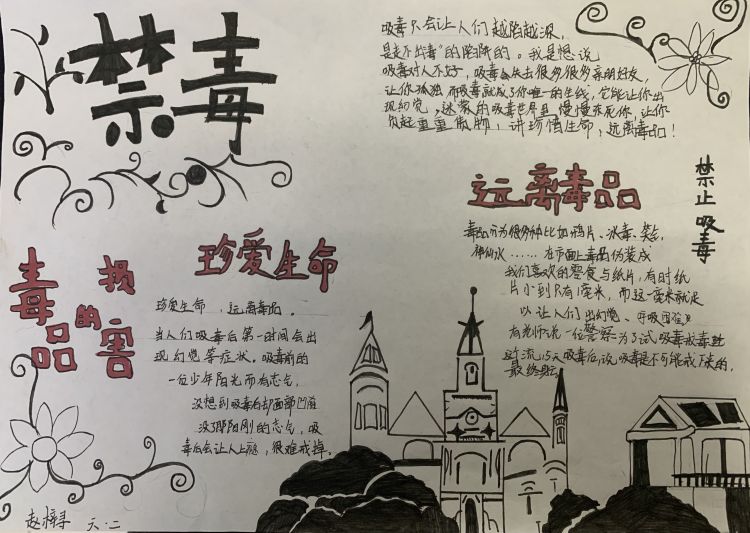 禁毒
吸毒只会让人们越陷越深,
是走不出毒"的陷阱的。我是想说
吸毒对人不好,吸毒会失去很多很多亲朋好友,
让你孤独 而吸毒就成了你唯一的生线,它能让你出
现幻觉,迷蒙的吸毒世界里 慢慢杀死你,让你
负起重重 ,讲珍惜生命,远离毒品!
远离毒品
禁止吸毒
毒品分为很多种比如鸦片、冰毒、
神仙水……在市面上毒品伪装成
我们喜欢的零食与纸片,有时纸
片小到只有1厘米,而这一厘米就足
以让人们出幻觉、呼吸困难
有老师说一位警察为了试吸毒戒毒
吸毒后,说吸毒是不可能戒下来的,
最终
珍爱生命
珍爱生命,远离毒品。
当人们吸毒后第一时间会出
现幻觉等症状。吸毒前的
一位少年阳光而有志气,
没想到吸毒后却面部凹陷
没了那阳刚的志气,吸
毒后会让人上瘾,很难戒掉。
毒品的损害
六·二